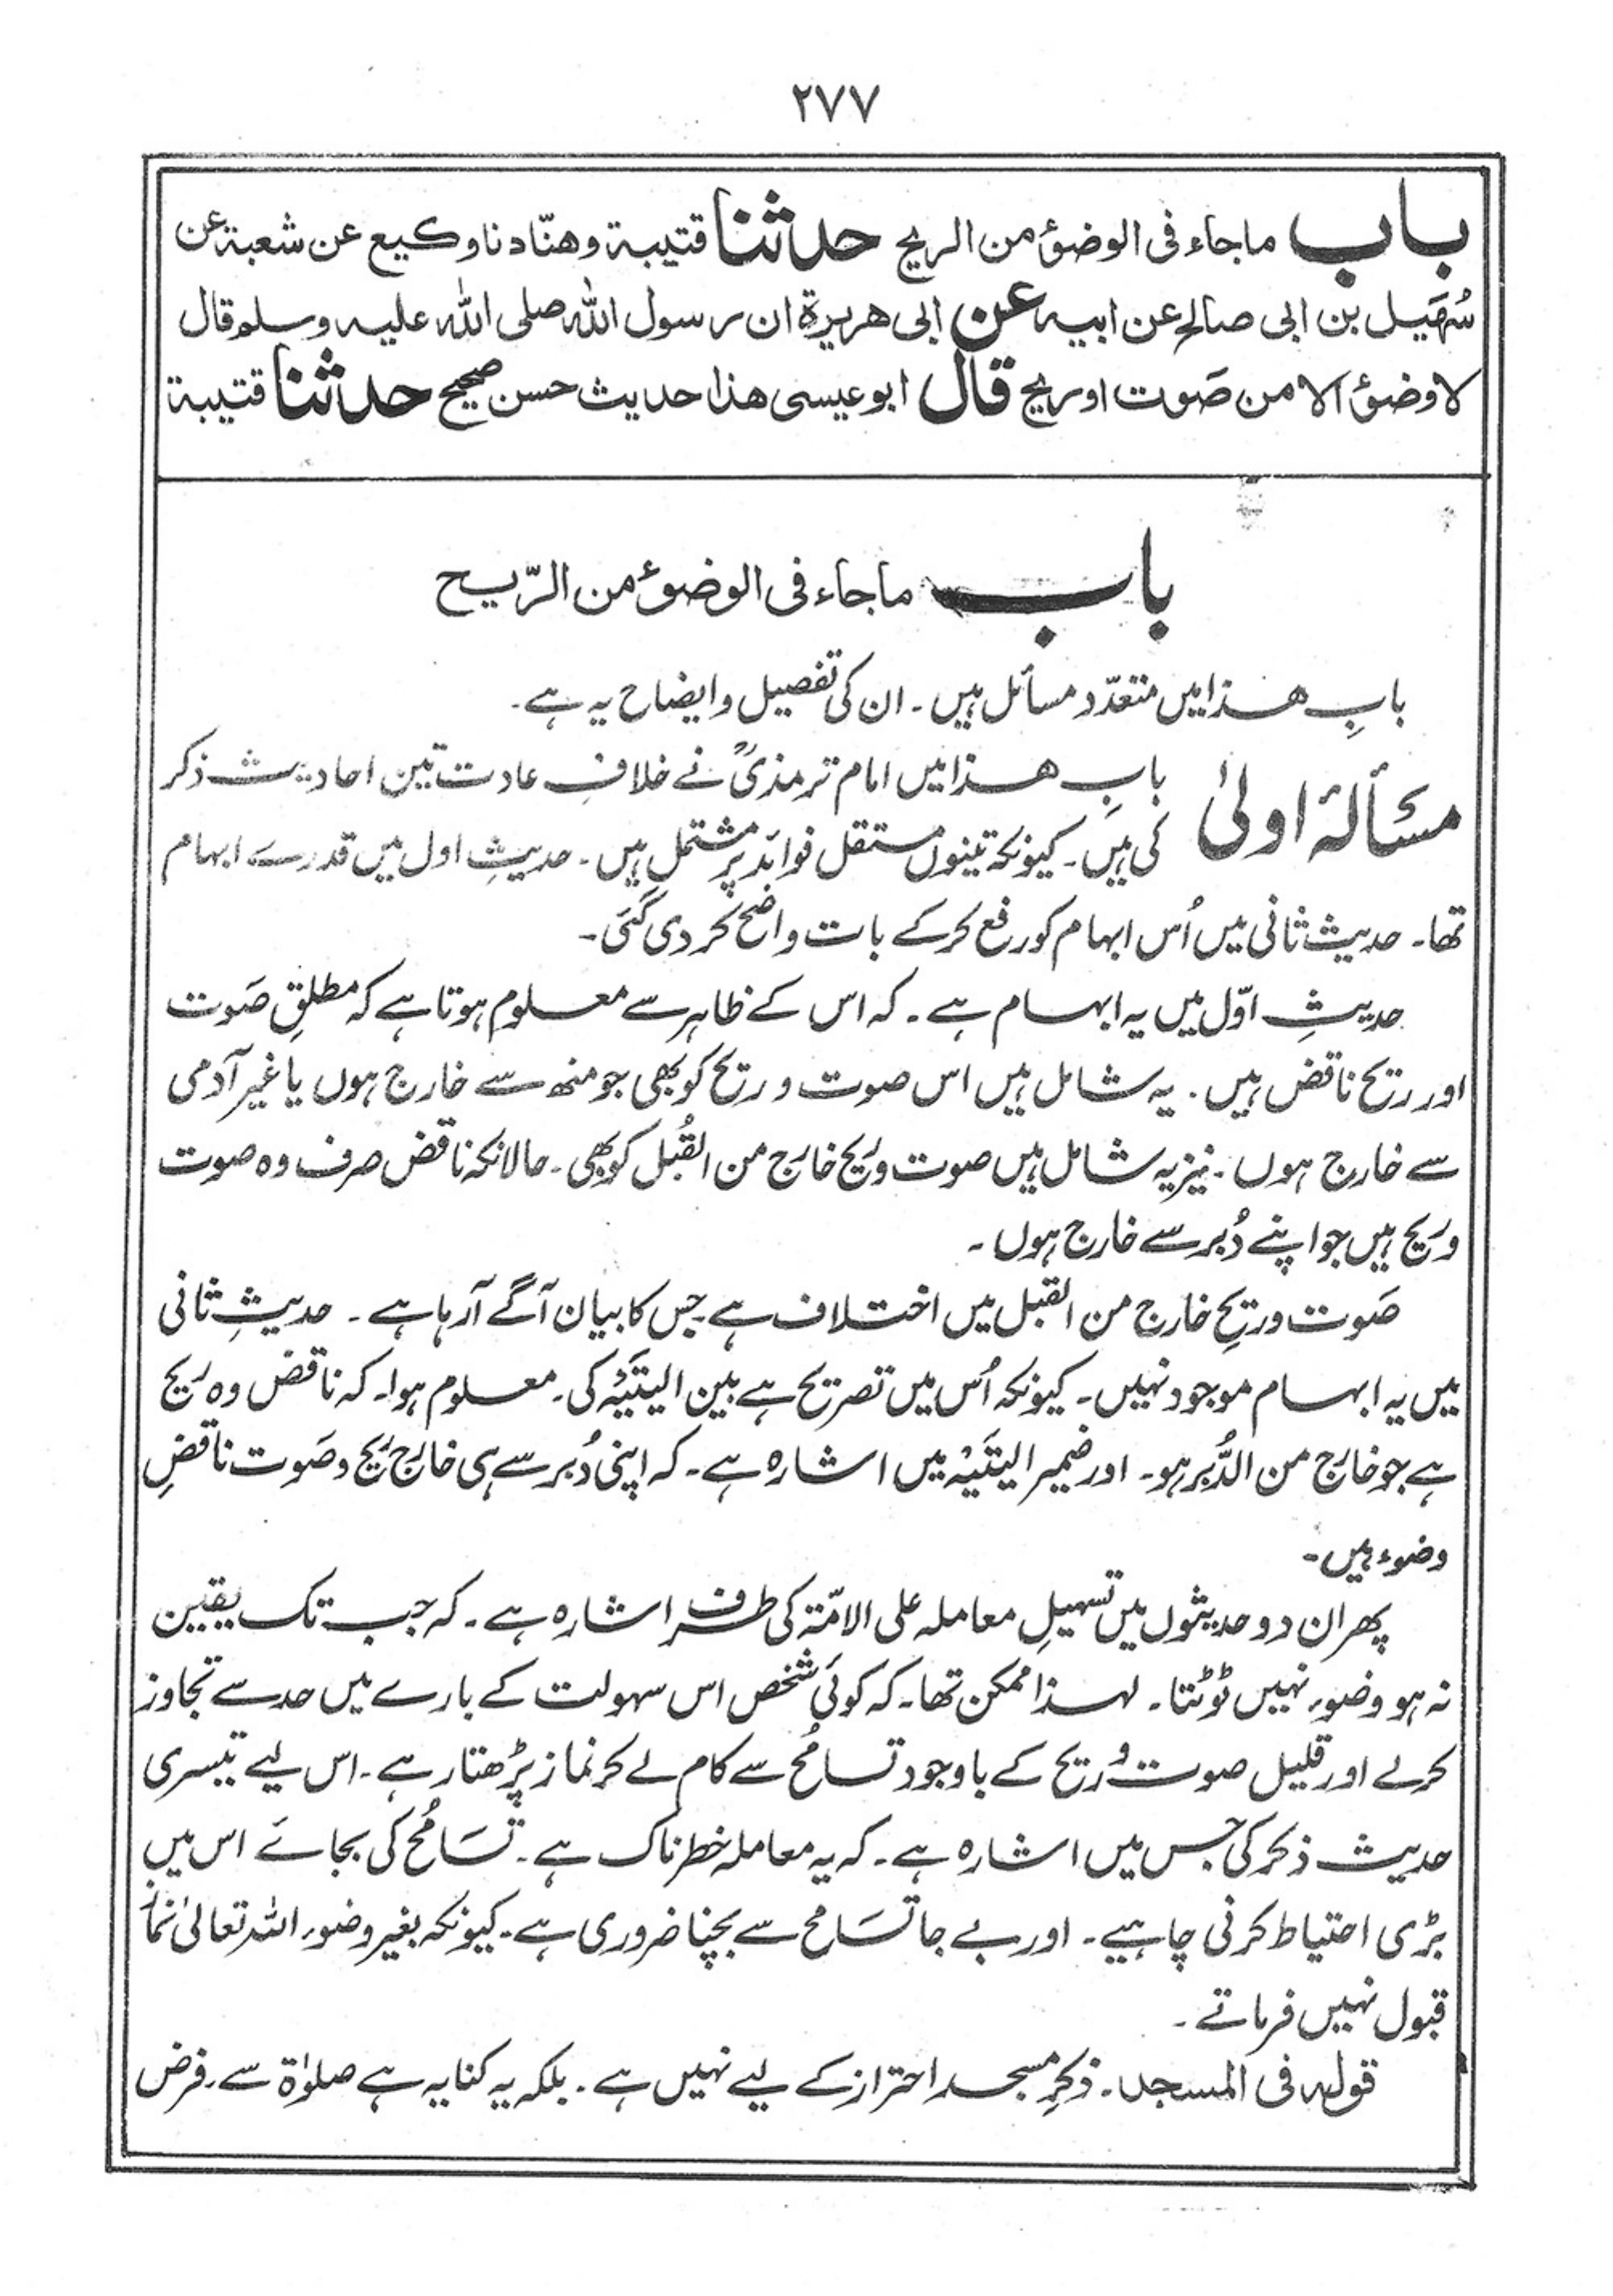 ۲۷۷
باب ماجاء فی الوضوٴ من الریح حدثنا قتیبة وھنّاد ناوکیع عن شعبة عن
سُھَیل بن ابی صالح عن ابیہ عن ابی ھریرة ان رسول اللہ صلی اللہ علیہ وسلم قال
لا وضوٴ الا من صَوت اوریح قال ابوعیسی ھذا حدیث حسن صحیح حدثنا قتیبة
باب ماجاء فی الوضوٴ من الرّیح
بابِ ھذا میں متعدّد مسائل ہیں۔ ان کی تفصیل و ایضاح یہ ہے۔
مسألۂ اولیٰ بابِ ھذا میں امام ترمذیؒ نے خلافِ عادت تین احادیث ذکر
کی ہیں۔ کیونکہ تینوں مستقل فوائد پر مشتمل ہیں۔ حدیثِ اول میں قدرے ابہام
تھا۔ حدیث ثانی میں اُس ابہام کو رفع کرکے بات واضح کردی گئی۔
حدیثِ اوّل میں یہ ابہام ہے۔ کہ اس کے ظاہر سے معلوم ہوتا ہے کہ مطلقِ صَوت
اور ریح ناقض ہیں۔ یہ شامل ہیں اس صوت و ریح کو بھی جو منھ سے خارج ہوں یا غیر آدمی
سے خارج ہوں۔ نیز یہ شامل ہیں صوت وریح خارج من القُبل کو بھی۔ حالانکہ ناقض صرف وہ صوت
وریح ہیں جو اپنے دُبر سے خارج ہوں ۔
صَوت وریحِ خارج من القبل میں اختلاف ہے جس کا بیان آگے آرہا ہے ۔ حدیثِ ثانی
میں یہ ابہام موجود نہیں۔ کیونکہ اُس میں تصریح ہے بین الیتَیْہ کی۔ معلوم ہوا۔ کہ ناقض وہ ریح
ہے جو خارج من الدُّبر ہو۔ اور ضمیر الیتَیْہ میں اشارہ ہے۔ کہ اپنی دُبر سے ہی خارج ریح و صَوت ناقضِ
وضوء ہیں۔
پھر ان دو حدیثوں میں تسہیلِ معاملہ علی الامّة کی طرف اشارہ ہے۔ کہ جب تک یقین
نہ ہو وضوء نہیں ٹوٹتا۔ لہذا ممکن تھا۔ کہ کوئی شخص اس سہولت کے بارے میں حد سے تجاوز
کرلے اور قلیل صوت و ریح کے باوجود تسامُح سے کام لے کر نماز پڑھتا رہے۔ اس لیے تیسری
حدیث ذکر کی جس میں اشارہ ہے۔ کہ یہ معاملہ خطرناک ہے۔ تَسَامُح کی بجائے اس میں
بڑی احتیاط کرنی چاہیے۔ اور بے جا تسَامح سے بچنا ضروری ہے۔ کیونکہ بغیر وضوء اللہ تعالیٰ نماز
قبول نہیں فرماتے ۔
قولہ فی المسجد۔ ذکرِ مسجد احتراز کے لیے نہیں ہے۔ بلکہ یہ کنایہ ہے صلوٰۃ سے۔ فرض